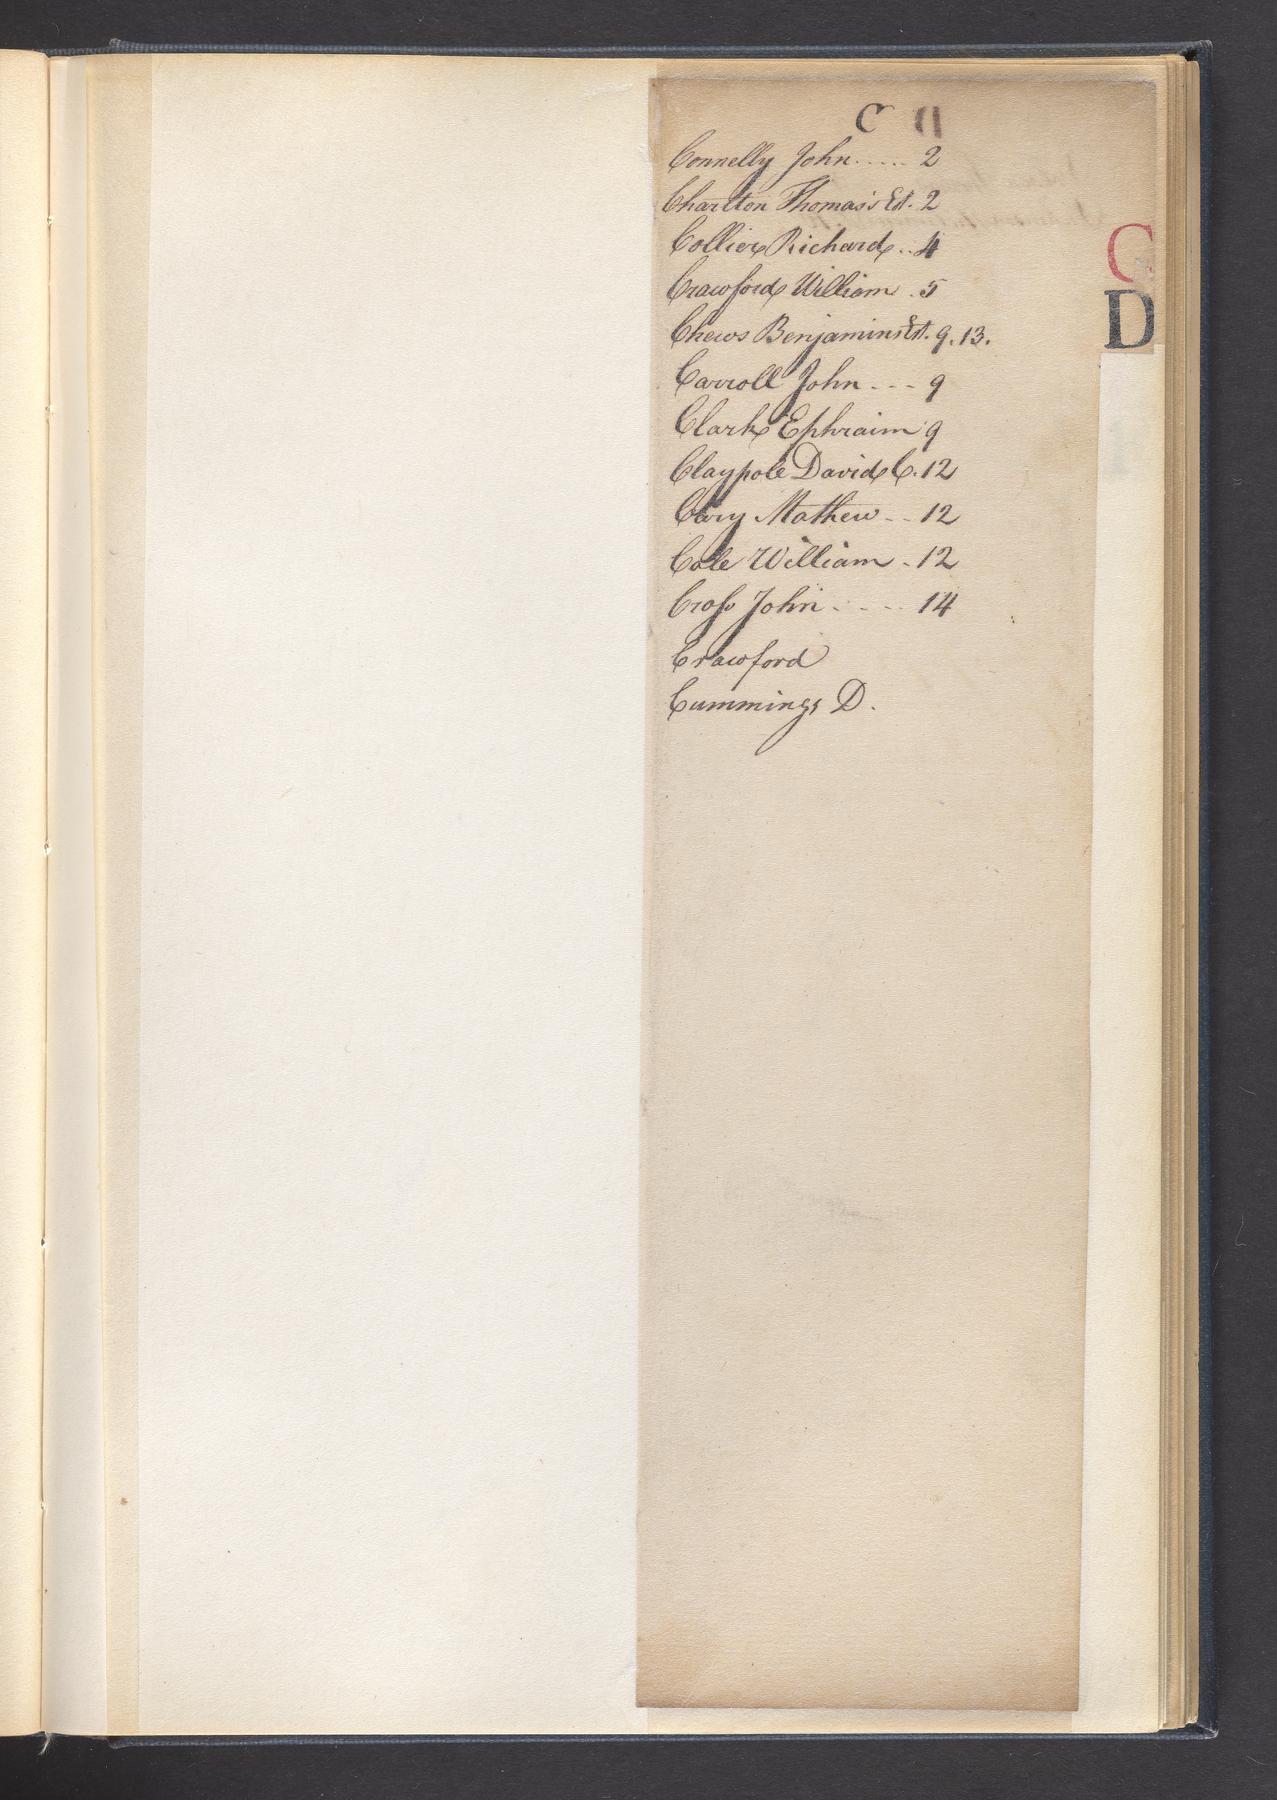 C
Connelly John ..... 2
Charlton Thomas's Est. 2
Collier Richard .. 4
Crawford William . 5
Chews Benjamins Est. 9. 13.
Carroll John --- 9
Clark Ephraim 9
Claypole David C. 12
Cary Mathew -- 12
Cole William - 12
Cross John ---- 14
Crawford
Cummings D.
C
D